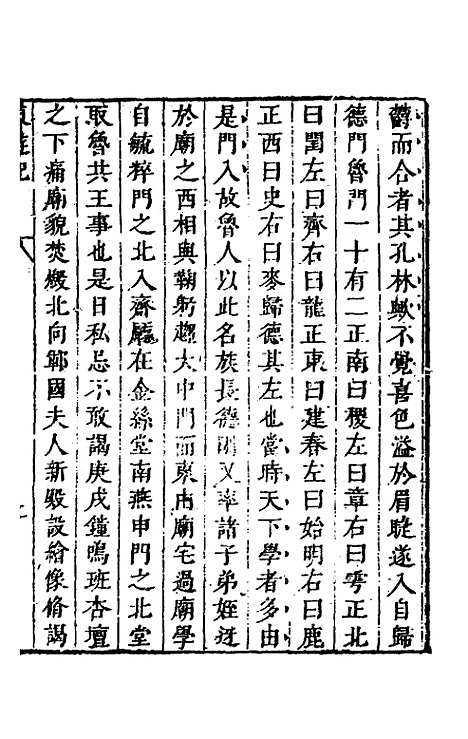 鬱而合者其孔林歟不覺喜色溢於眉睫遂入自歸
德門魯門一十有二正南曰稷左曰章右曰雩正北
曰圍左曰齊右曰龍正東曰建春左曰始明右曰鹿
正西曰史右曰麥歸德其左也當時天下學者多由
是門入故魯人以此名族長德謂又率諸子弟姪迓
於廟之西相與鞠躬趨大中門而東由廟宅過廟學
自毓粹門之北入齋廳在金絲堂南燕申門之北堂
取魯共王事也是日私忌不敢謁庚戌鐘鳴班杏壇
之下痛廟貌焚燬北向鄆國夫人新殿設繪像脩謁
遊記